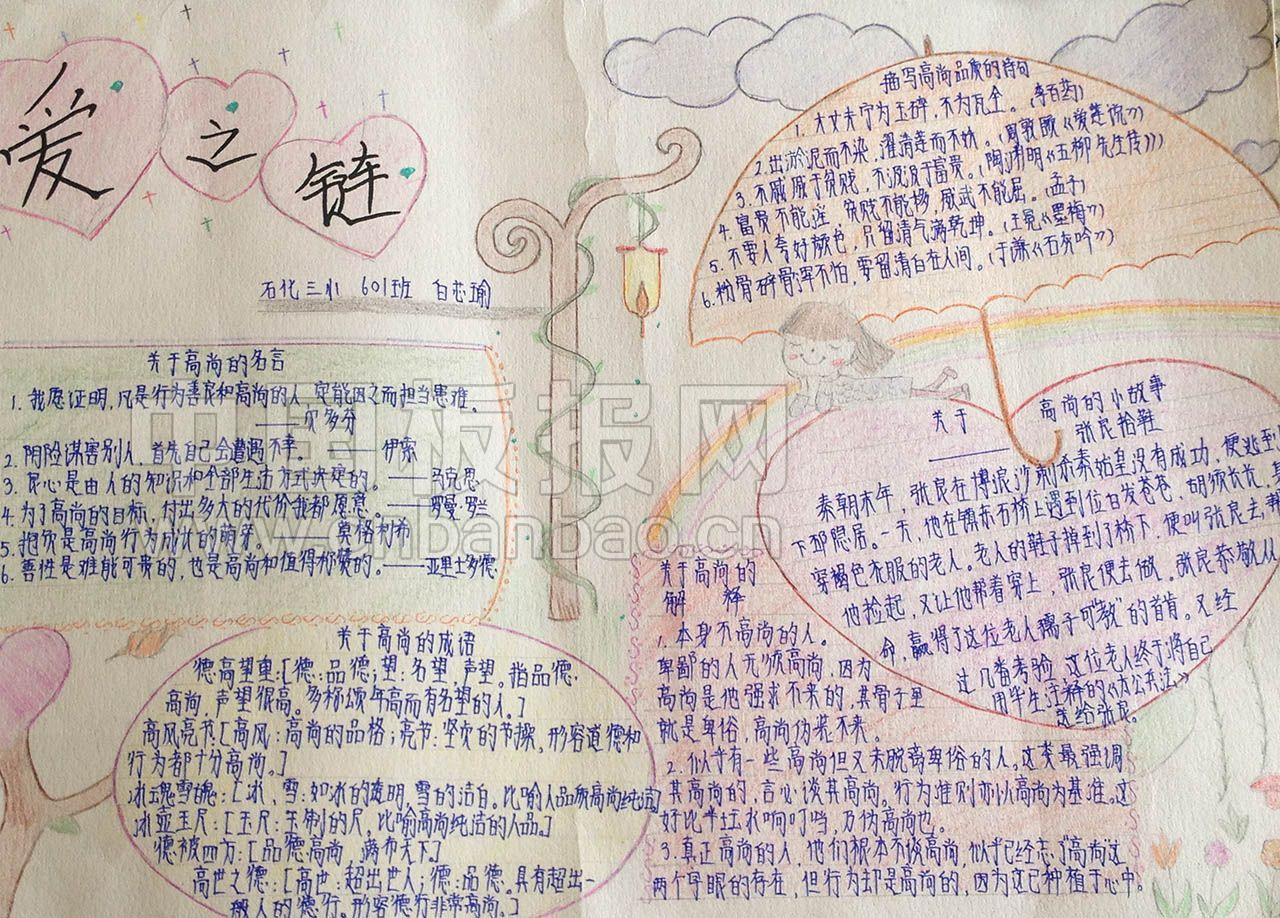 爱之链
石化三小 601班 白芯瑜
关于高尚的名言
1. 我愿证明，凡是行为善良和高尚的人，定能因之而担当患难。
——贝多芬
2. 阴险谋害别人，首先自己会遭遇不幸。——伊索
3. 良心是由人的知识和全部生活方式决定的。——马克思
4. 为了高尚的目标，付出多大的代价我都愿意。——罗曼·罗兰
5. 抱负是高尚行为成长的萌芽。——莫格利希
6. 善性是难能可贵的，也是高尚和值得称赞的。——亚里士多德
关于高尚的成语
德高望重：[德：品德；望：名望，声望。指品德
高尚，声望很高。多称颂年高而有名望的人。]
高风亮节[高风：高尚的品格；亮节：坚贞的节操。形容道德和
行为都十分高尚。]
冰魂雪魄：[冰、雪：如冰的透明，雪的洁白。比喻人品质高尚纯洁]
冰壶玉尺：[玉尺：玉制的尺，比喻高尚纯洁的人品。]
德被四方：[品德高尚，满布天下]
高世之德：[高世：超出世人；德：品德。具有超出一
般人的德行。形容德行非常高尚。]
描写高尚品质的诗句
1. 大丈夫宁为玉碎，不为瓦全。(李百药)
2. 出淤泥而不染，濯清莲而不妖。(周敦颐《爱莲说》)
3. 不戚戚于贫贱，不汲汲于富贵。(陶渊明《五柳先生传》)
4. 富贵不能淫，贫贱不能移，威武不能屈。(孟子)
5. 不要人夸好颜色，只留清气满乾坤。(王冕《墨梅》)
6. 粉骨碎骨浑不怕，要留清白在人间。(于谦《石灰吟》)
关于高尚的小故事
——张良拾鞋
秦朝末年，张良在博浪沙刺杀秦始皇没有成功，便逃到
下邳隐居。一天，他在镇东石桥上遇到位白发苍苍、胡须长长、
穿褐色衣服的老人。老人的鞋子掉到了桥下，便叫张良去
他捡起，又让他帮着穿上，张良便去做。张良恭敬从
命，赢得了这位老人孺子可"教"的首肯。又经
过几番考验，这位老人终于将自己
用毕生注释的《太公兵法》
送给张良。
关于高尚的
解释
1. 本身不高尚的人。
卑鄙的人无须高尚，因为
高尚是他强求不来的，其骨子里
就是卑俗，高尚伪装不来。
2. 似乎有一些高尚但又未脱离卑俗的人。这类最强调
其高尚的，言必谈其高尚。行为准则亦以高尚为基准。这
好比半缸水响叮当，乃伪高尚也。
3. 真正高尚的人，他们根本不谈高尚，似乎已经忘了高尚这
两个字眼的存在，但行为却是高尚的，因为这已种植于心中。
中国板报网
www.cnbanbao.cn